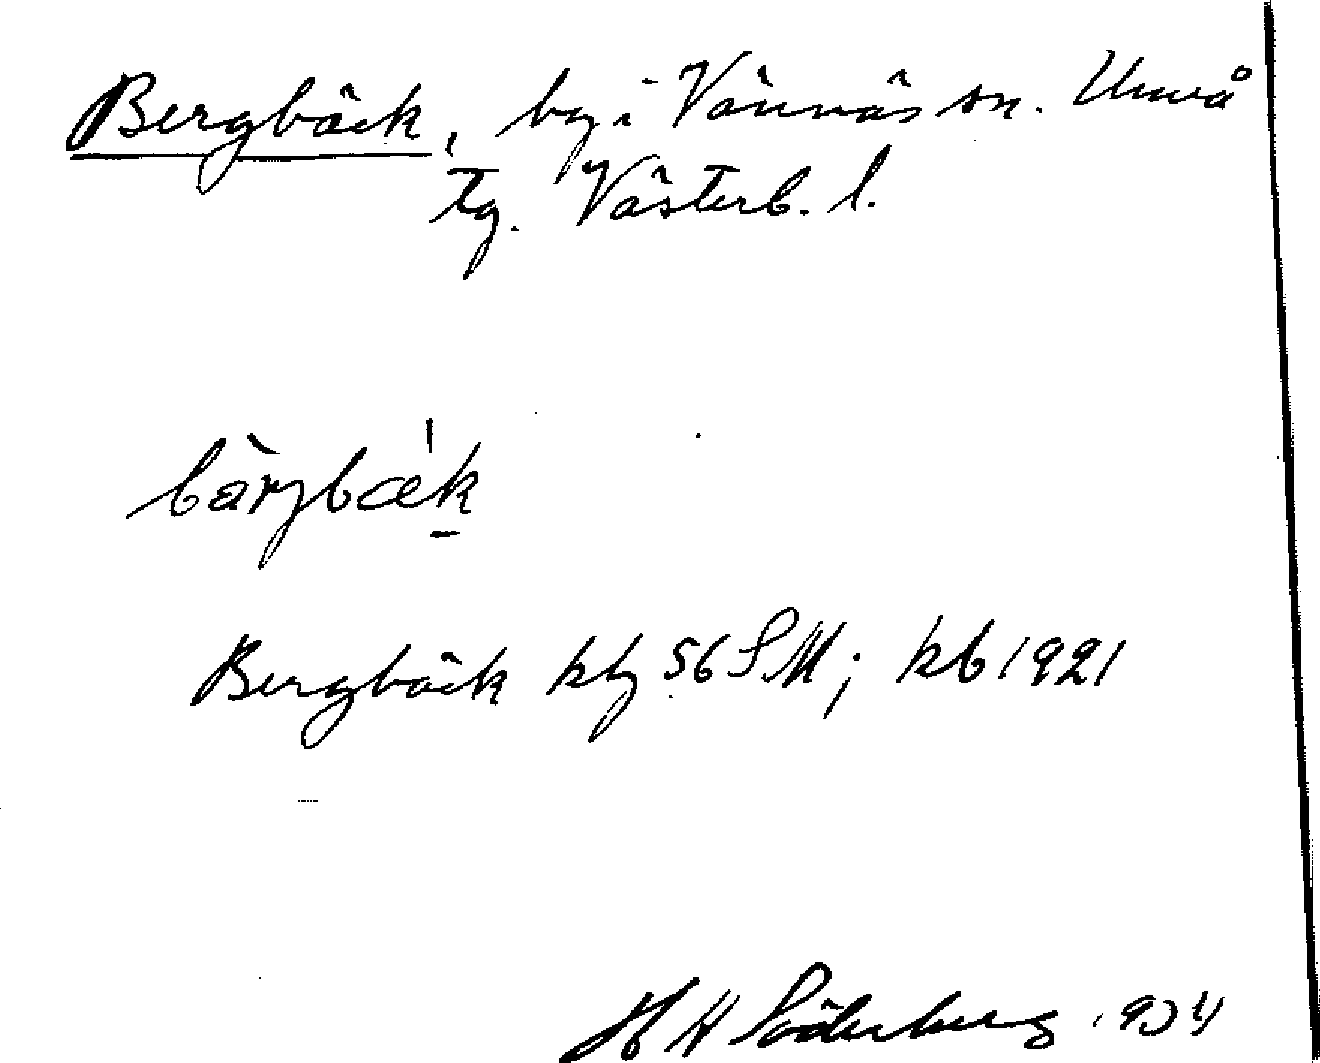 Bergbäck, by i Vännäs sn. Umeå
tg. Västerb. l.
bàrjbæ̍k̠
Bergbäck kbg 56 SM; kb 1921
H Söderberg 1934